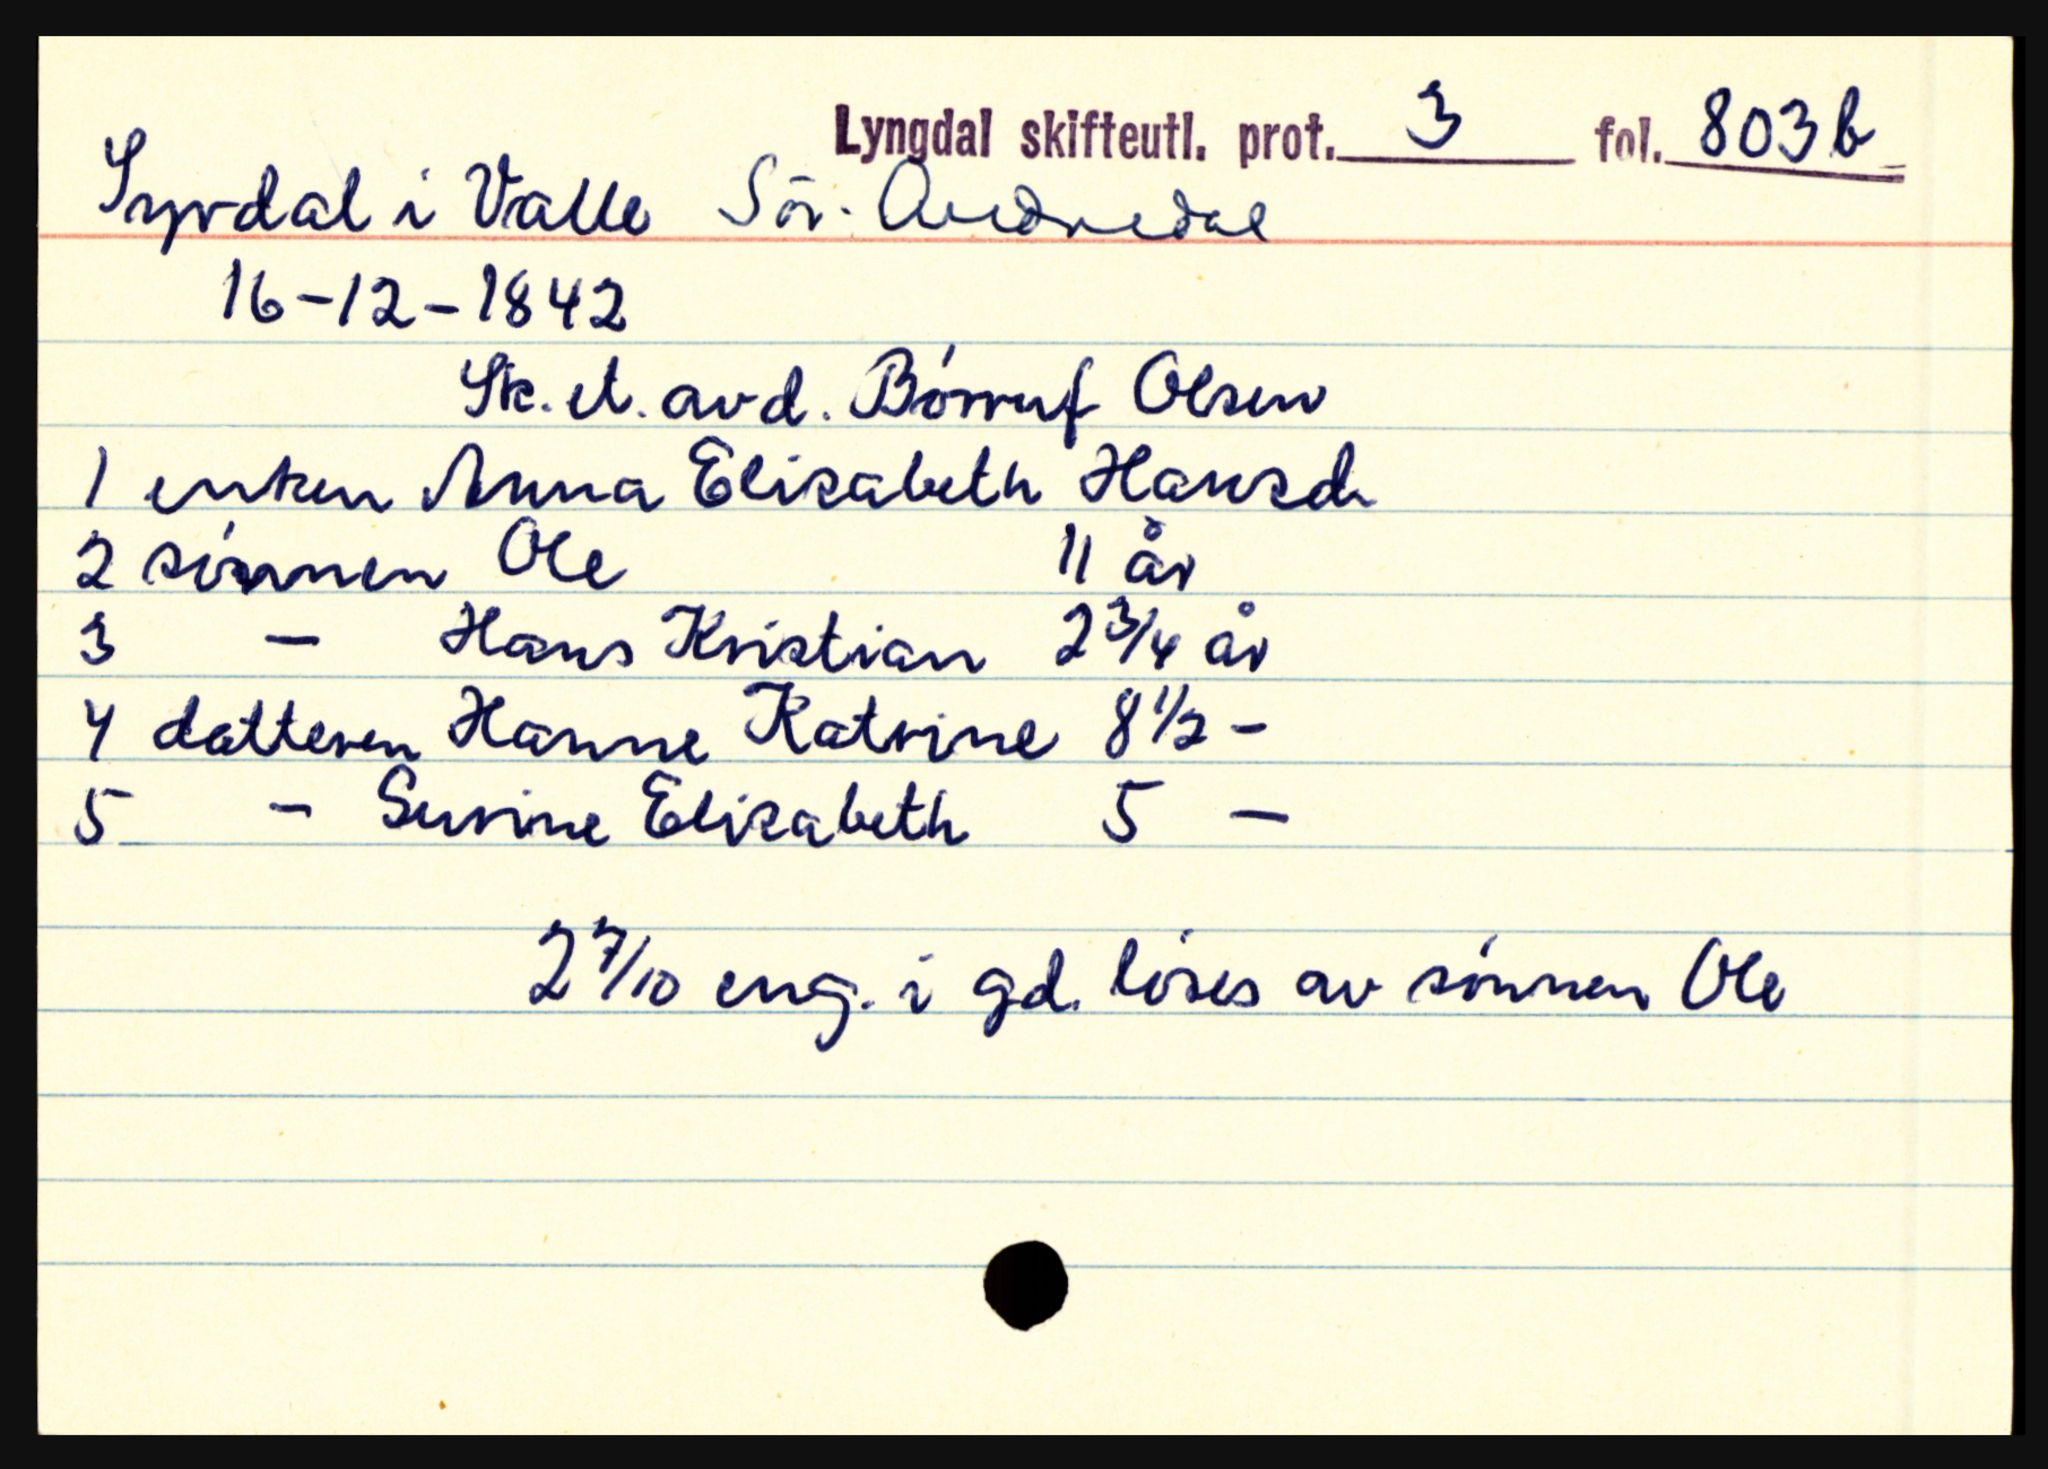 Lyngdal skifteutl. prot. 3 fol. 803 b
Syrdal i Valle Sör-Audnedal
16-12-1842
Sk. et. avd. Börruf Olsen
1 enken Anna Elisabeth Hansd.
2 sönnen Ole 11 år
3 - Hans Kristian 2 3/4 år
4 datteren Hanne Katrine 8 1/2 -
5 - Serine Elisabeth 5 -
2 7/10 eng. i gd. löses av sönnen Ole